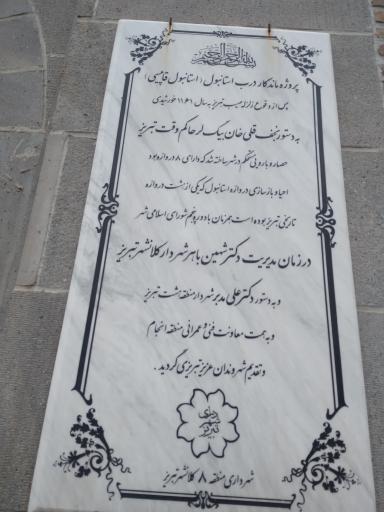 بسم الله الرحمن الرحیم
پروژه ماندگار درب استانبول (استانبول قاپیسی)
پس از وقوع زلزله مهیب تبریز به سال ۱۱۶۱ خورشیدی
به دستور نجف قلی خان بیگلر حاکم وقت تبریز
حصار و بارویی محکم در شهر ساخته شد که دارای ۸ دروازه بود
احیا و بازسازی دروازه استانبول که یکی از هشت دروازه
تاریخی تبریز بوده است همزمان با دوره پنجم شورای اسلامی شهر
در زمان مدیریت دکتر شهین باهر شهردار کلانشهر تبریز
و به دستور دکتر علی مدبر شهردار منطقه هشت تبریز
و به همت معاونت فنی و عمرانی منطقه انجام
و تقدیم شهروندان عزیز تبریزی گردید.
شهرداری تبریز
شهرداری منطقه ۸ کلانشهر تبریز